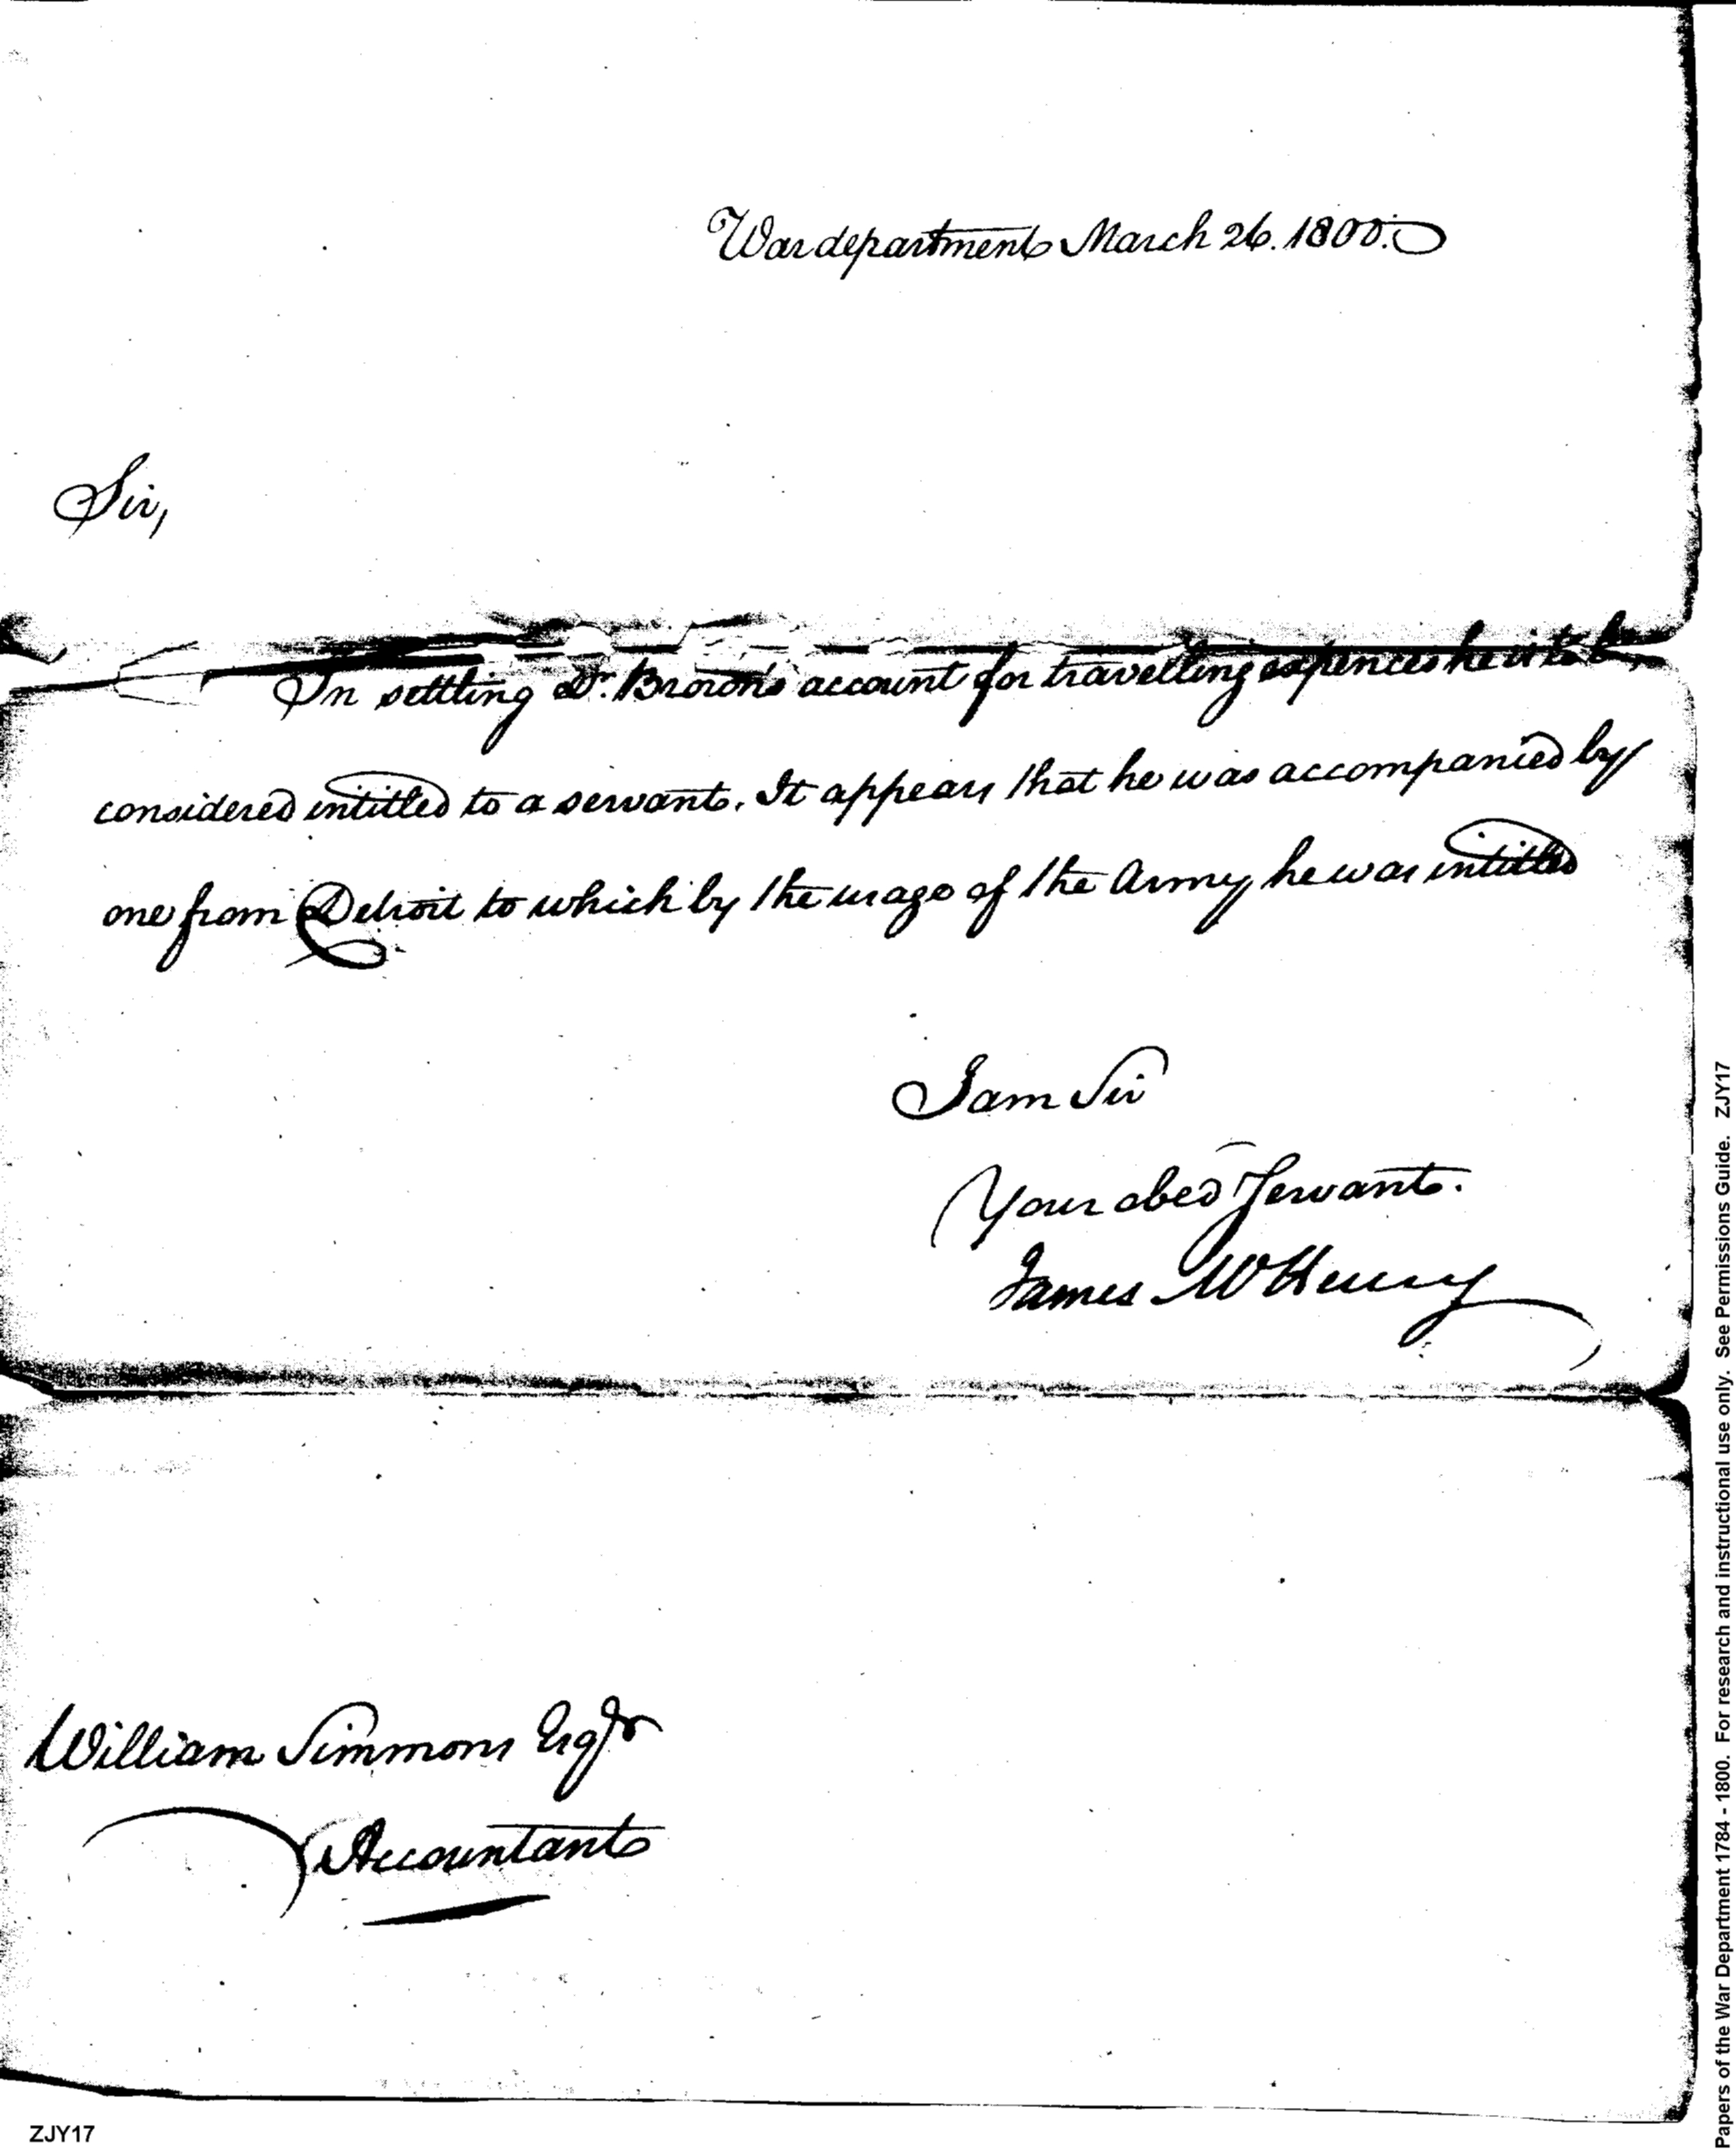 War department March 26. 1800.
Sir,
In settling Dr. Brown's account for travelling expences he is to be
considered intitled to a servant. It appears that he was accompanied by
one from Detroit to which by the usage of the Army he was intitled
I am Sir
Your obed Servant.
James McHenry
William Simmons Esqr
Accountant
ZJY17
Papers of the War Department 1784 - 1800. For research and instructional use only. See Permissions Guide. ZJY17